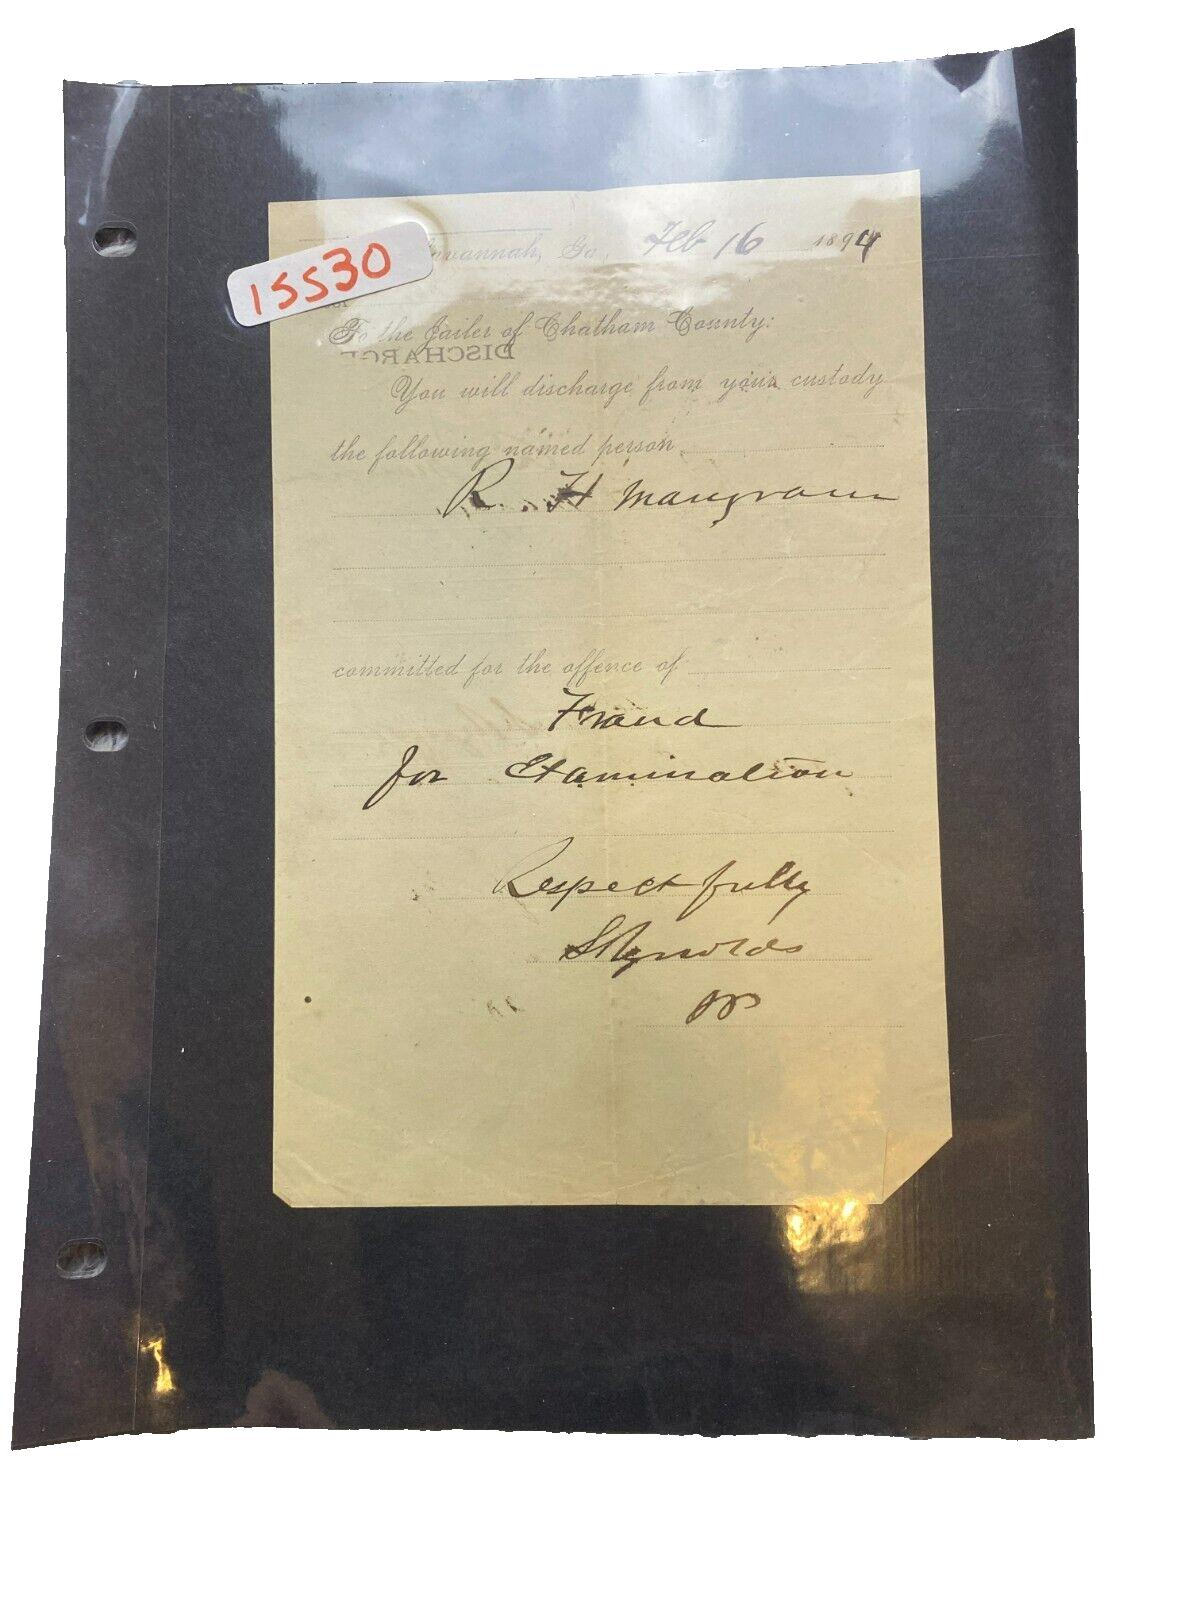 15530
Savannah, Ga., Feb 16 1894
To the Jailer of Chatham County:
DISCHARGE
You will discharge from your custody
the following named person
R. H Mangram
committed for the offence of
Fraud
for Examination
Respectfully